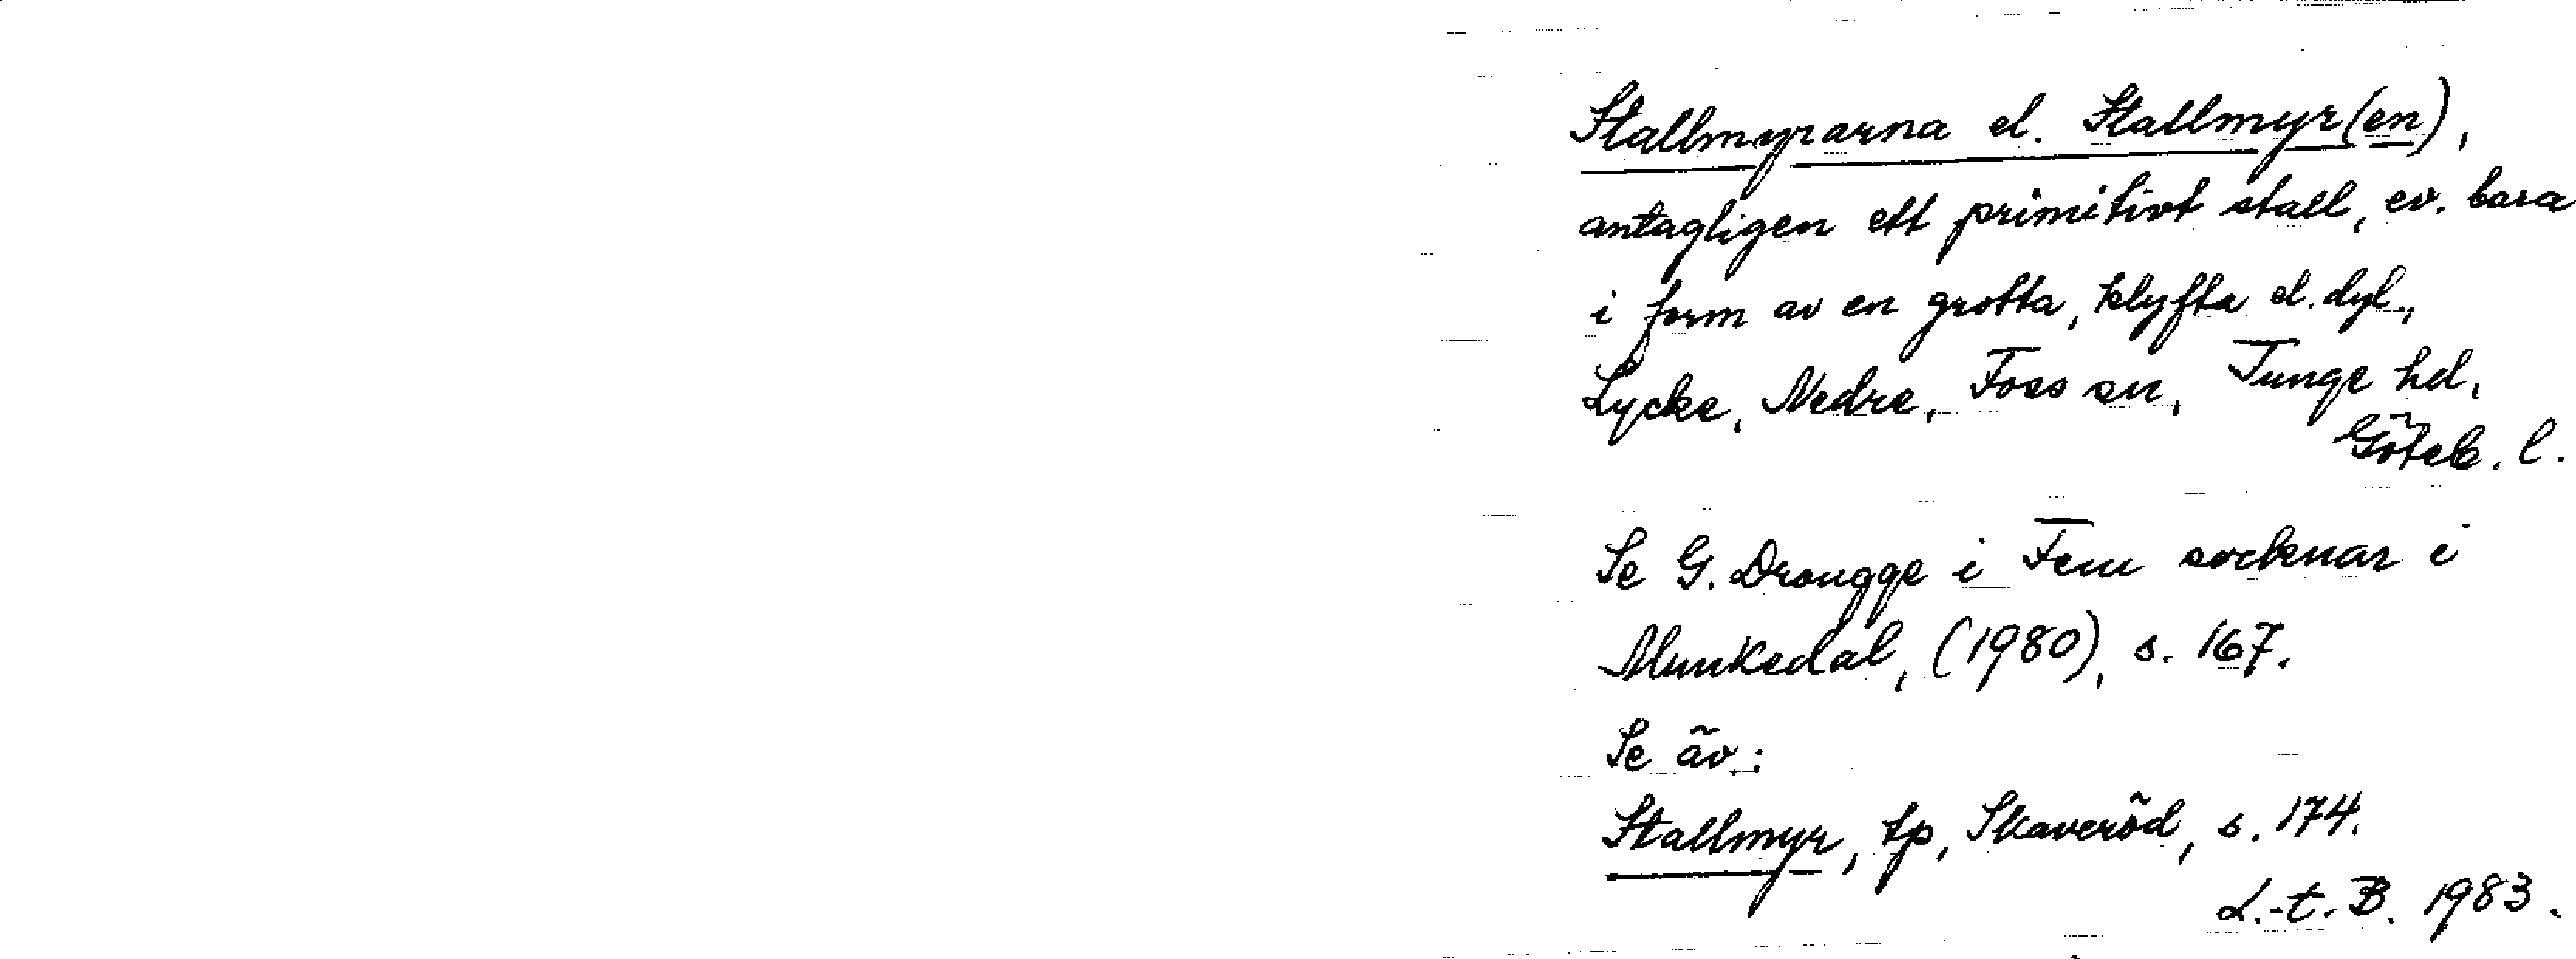 Stallmyrarna el. Stallmyr(en),
antagligen ett primitivt stall, ev. bara
i form av en grotta, klyfta el. dyl.,
Lycke, Nedre, Foss sn, Tunge hd,
Göteb. l.
Se G. Drougge i Fem socknar i
Munkedal, (1980), s. 167.
Se äv.:
Stallmyr, tp, Skaveröd, s. 174.
L.-t. B. 1983.